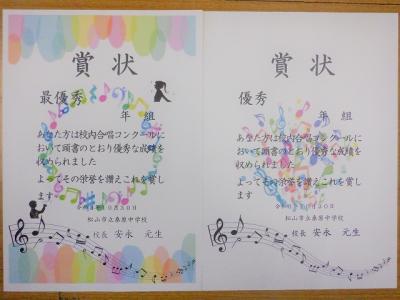 賞状
最優秀
年 組
あなた方は校内合唱コンクールに
おいて頭書のとおり優秀な成績を
収められました
よってその栄誉を讃えこれを賞し
ます
松山市立桑原中学校
校長 安永 元生
賞状
優秀
年 組
あなた方は校内合唱コンクールに
おいて頭書のとおり優秀な成績を
収められました
よってその栄誉を讃えこれを賞し
ます
松山市立桑原中学校
校長 安永 元生